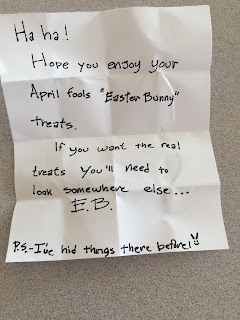 Ha ha!
Hope you enjoy your
April fools "Easter Bunny"
treats.
If you want the real
treats you'll need to
look somewhere else...
E.B.
P.S.-I've hid things there before!